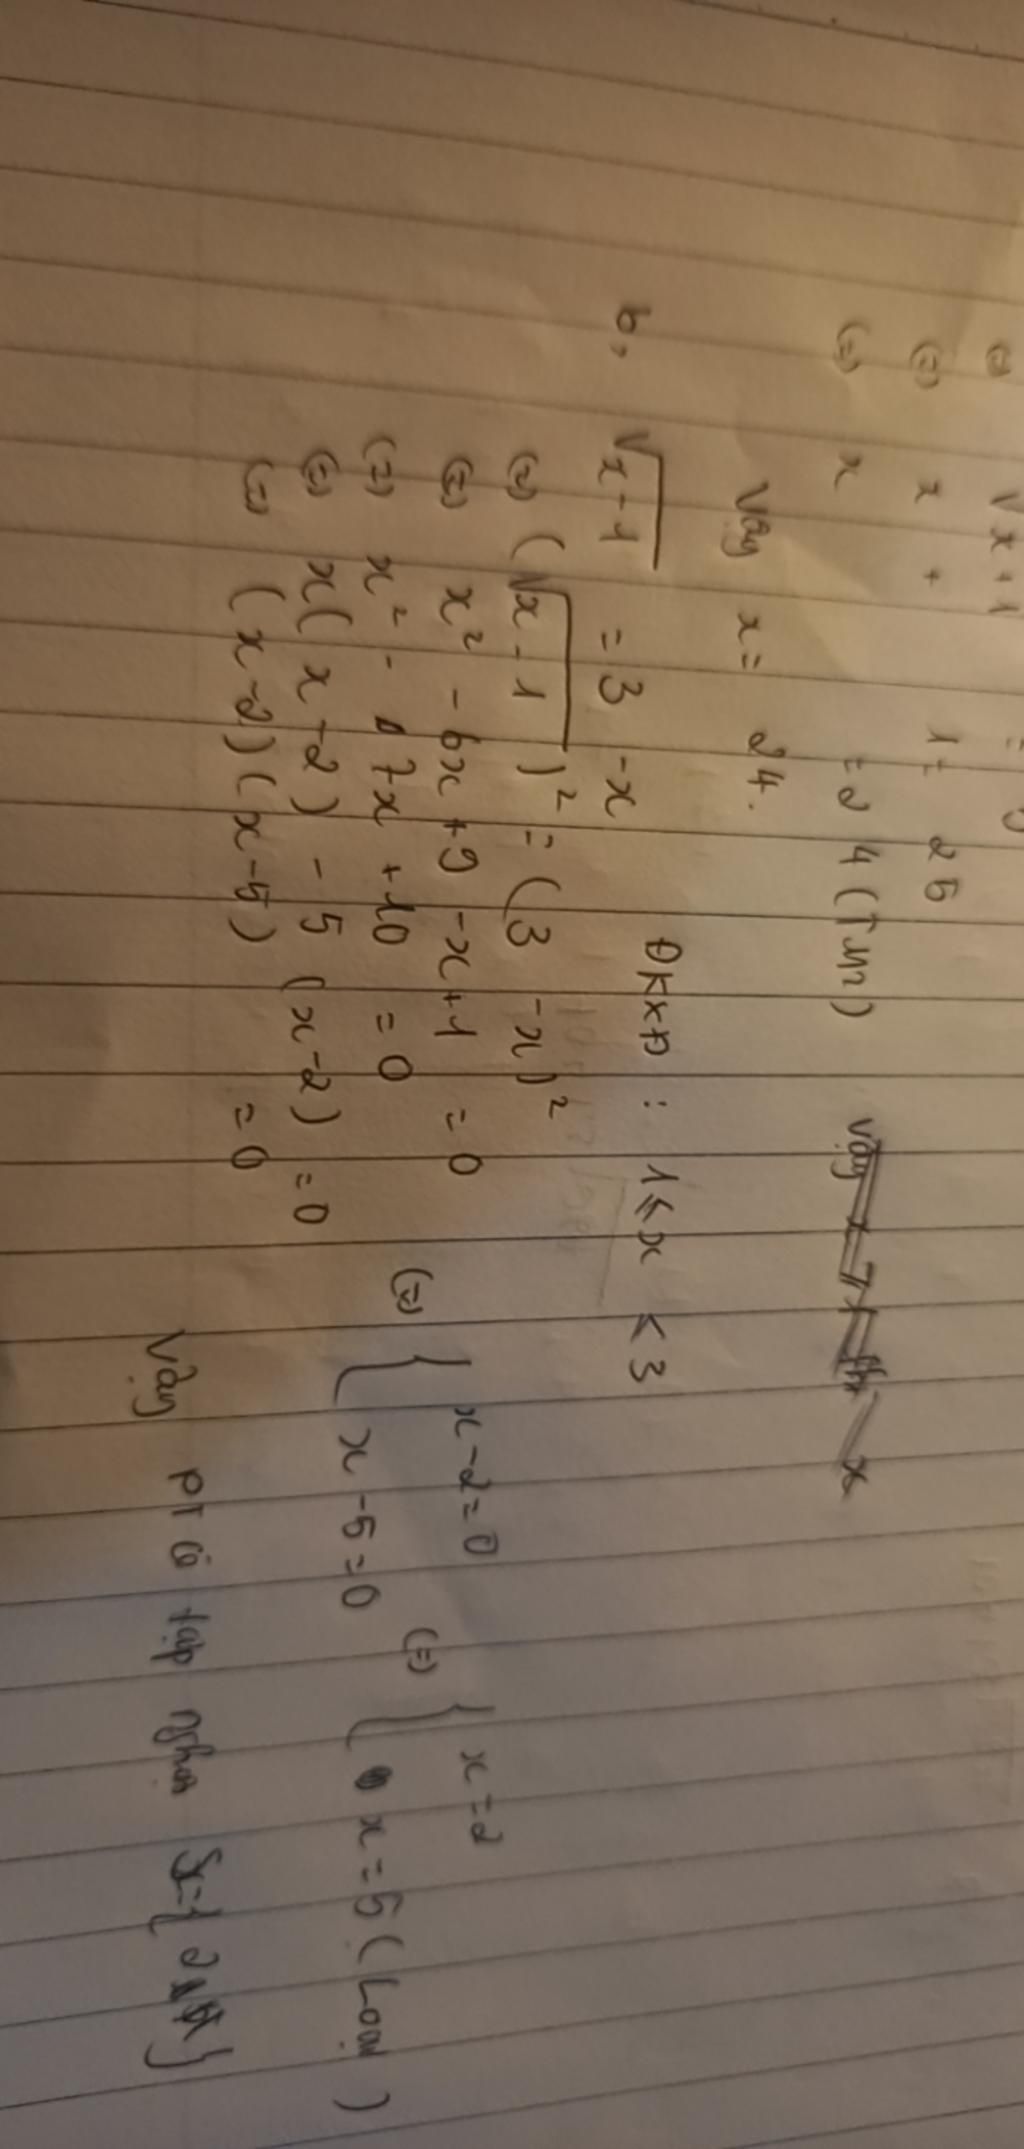 (=) √x+1 =
(=) x + 1 = 25
(=) x = 24 (TM)
Vậy x = 24.
b, √x-1 = 3 -x ĐKXĐ : 1 ≤ x ≤ 3
(=) (√x-1)² = (3 -x)²
(=) x² - 6x +9 -x+1 = 0
(=) x² - 7x +10 = 0
(=) x(x-2) - 5(x-2) = 0
(=) (x-2)(x-5) = 0
(=) { x-2=0 (=) { x=2
x-5=0 x=5 (Loại)
Vậy PT có tập nghiệm S={2}